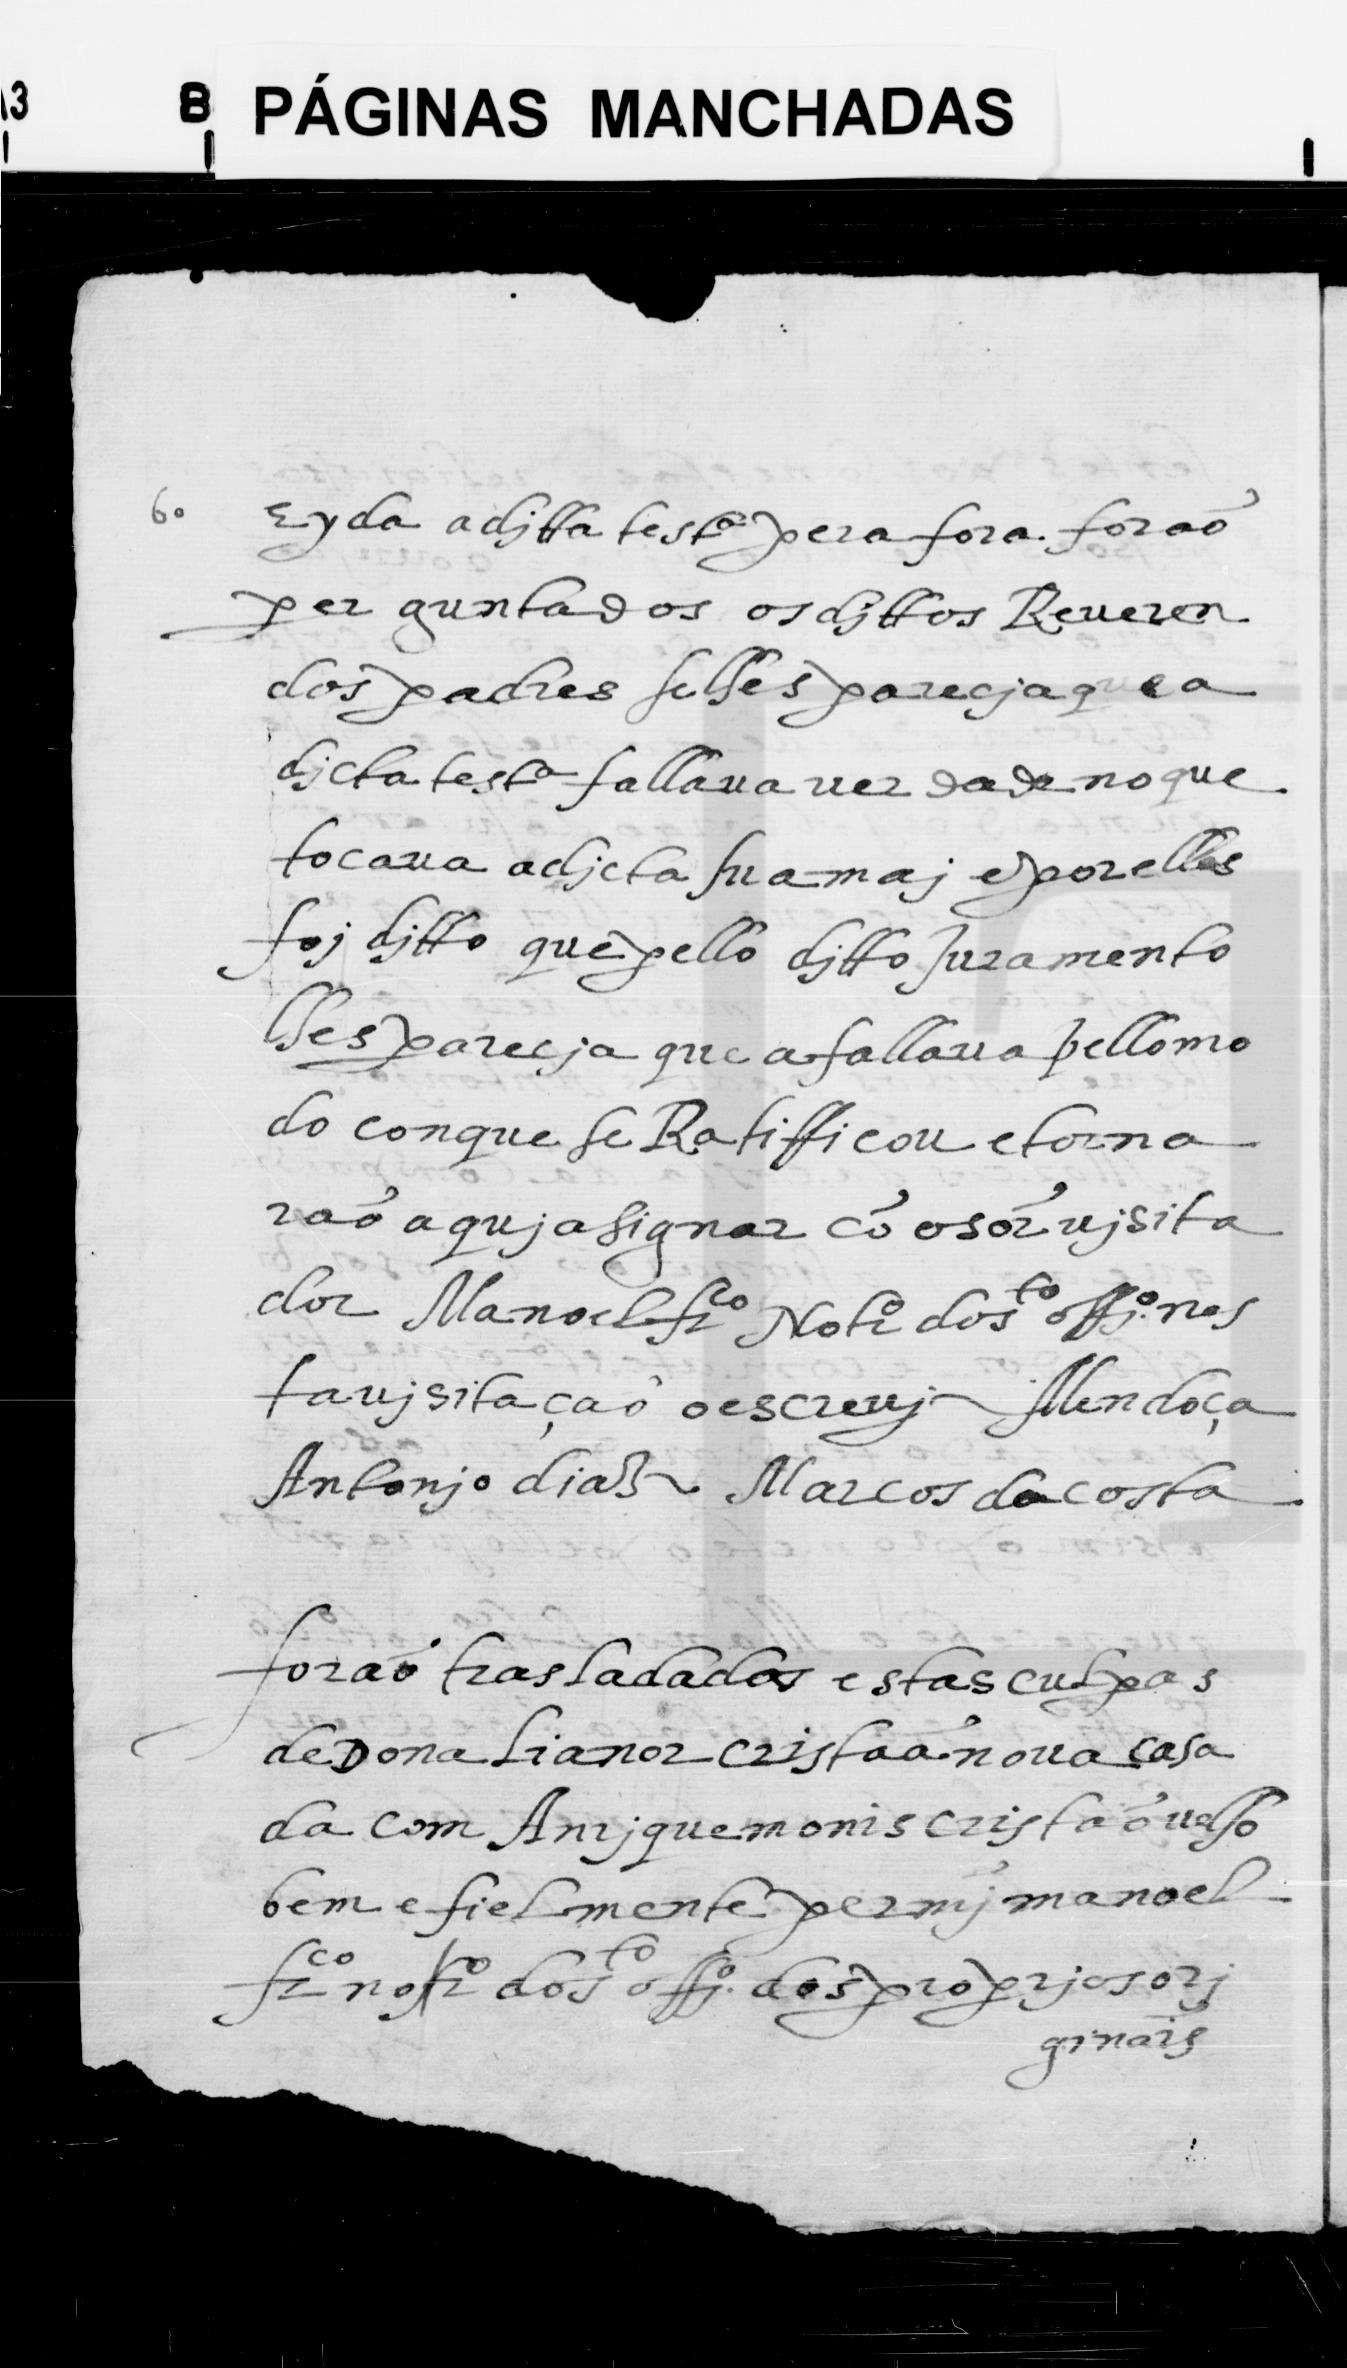 13 8 PÁGINAS MANCHADAS
60 E yda a djtta testa pera fora. foraõ
per guntados os djttos Reueren
dos padres se lhes parecja que a
djcta testa fallaua uerdade no que
tocaua a djcta sua maj e por elles
foj djtto que pello djtto Juramento
lhes parecja que a fallaua pello mo
do con que se Ratifficou e torna
raõ aquj a signar cõ o sor ujsita
dor Manoel frco Notro do sto offjo. nes
ta ujsitaçaõ o escreuj Mendoça
Antonjo dias Marcos da costa
foraõ trasladados estas culpas
de Dona Lianor cristaã noua casa
da com Anrjque monis cristaõ uelho
bem e fielmente per mj̃ manoel
frco notro do sto offjo. dos proprjos orj
ginais